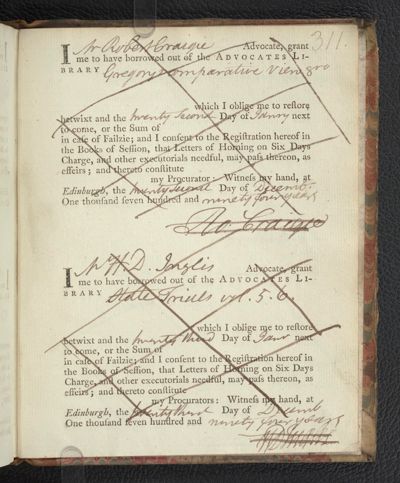 311.
I Mr Robert Craigie Advocate, grant
me to have borrowed out of the ADVOCATES LI-
BRARY Gregory's comparative View 8vo
which I oblige me to reſtore
betwixt and the twenty Second Day of Janry next
to come, or the Sum of
in caſe of Failzie; and I conſent to the Regiſtration hereof in
the Books of Seſſion, that Letters of Horning on Six Days
Charge, and other executorials needful, may paſs thereon, as
effeirs; and thereto conſtitute
my Procurator: Witneſs my hand, at
Edinburgh, the twenty second Day of Decemr.
One thouſand ſeven hundred and ninety four years
Ro. Craigie
I Mr H. D. Inglis Advocate, grant
me to have borrowed out of the ADVOCATES LI-
BRARY State Trials vol. 5. 6.
which I oblige me to reſtore
betwixt and the twenty third Day of Janr next
to come, or the Sum of
in caſe of Failzie; and I conſent to the Regiſtration hereof in
the Books of Seſſion, that Letters of Horning on Six Days
Charge, and other executorials needful, may paſs thereon, as
effeirs; and thereto conſtitute
my Procurators: Witneſs my hand, at
Edinburgh, the twenty third Day of Decemb
One thouſand ſeven hundred and ninety four years
HD Inglis